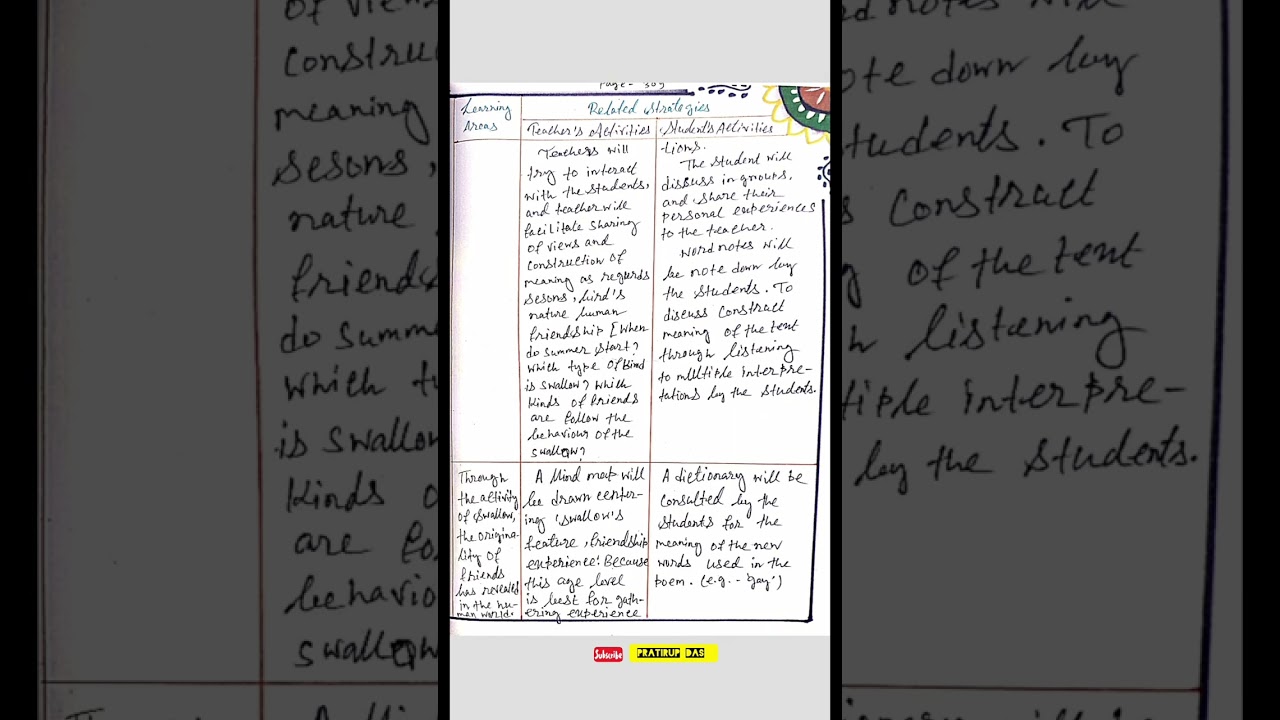 Page - 309
Learning
Areas
Related Strategies
Teacher's Activities
Students Activities
Teachers will
try to interact
with the students,
and teacher will
facilitate sharing
of views and
construction of
meaning as regards
sesons, bird's
nature human
friendship [When
do summer start?
which type of bird
is swallow? which
kinds of friends
are follow the
behaviour of the
swallow?
tions.
The student will
disscuss in groups,
and share their
personal experiences
to the teacher.
Word notes will
be note down by
the students. To
discuss construct
meaning of the text
through listening
to multiple interpre-
tations by the students.
Through
the activity
of swallow,
the origina-
lity of
friends
has revealed
in the hu-
man world.
A Mind map will
be drawn center-
ing 'swallow's
feature, friendship
experience'. Because
this age level
is best for gath-
ering experience
A dictionary will be
consulted by the
students for the
meaning of the new
words used in the
poem. (e.g. - 'gay')
Subscribe
PRATIRUP DAS